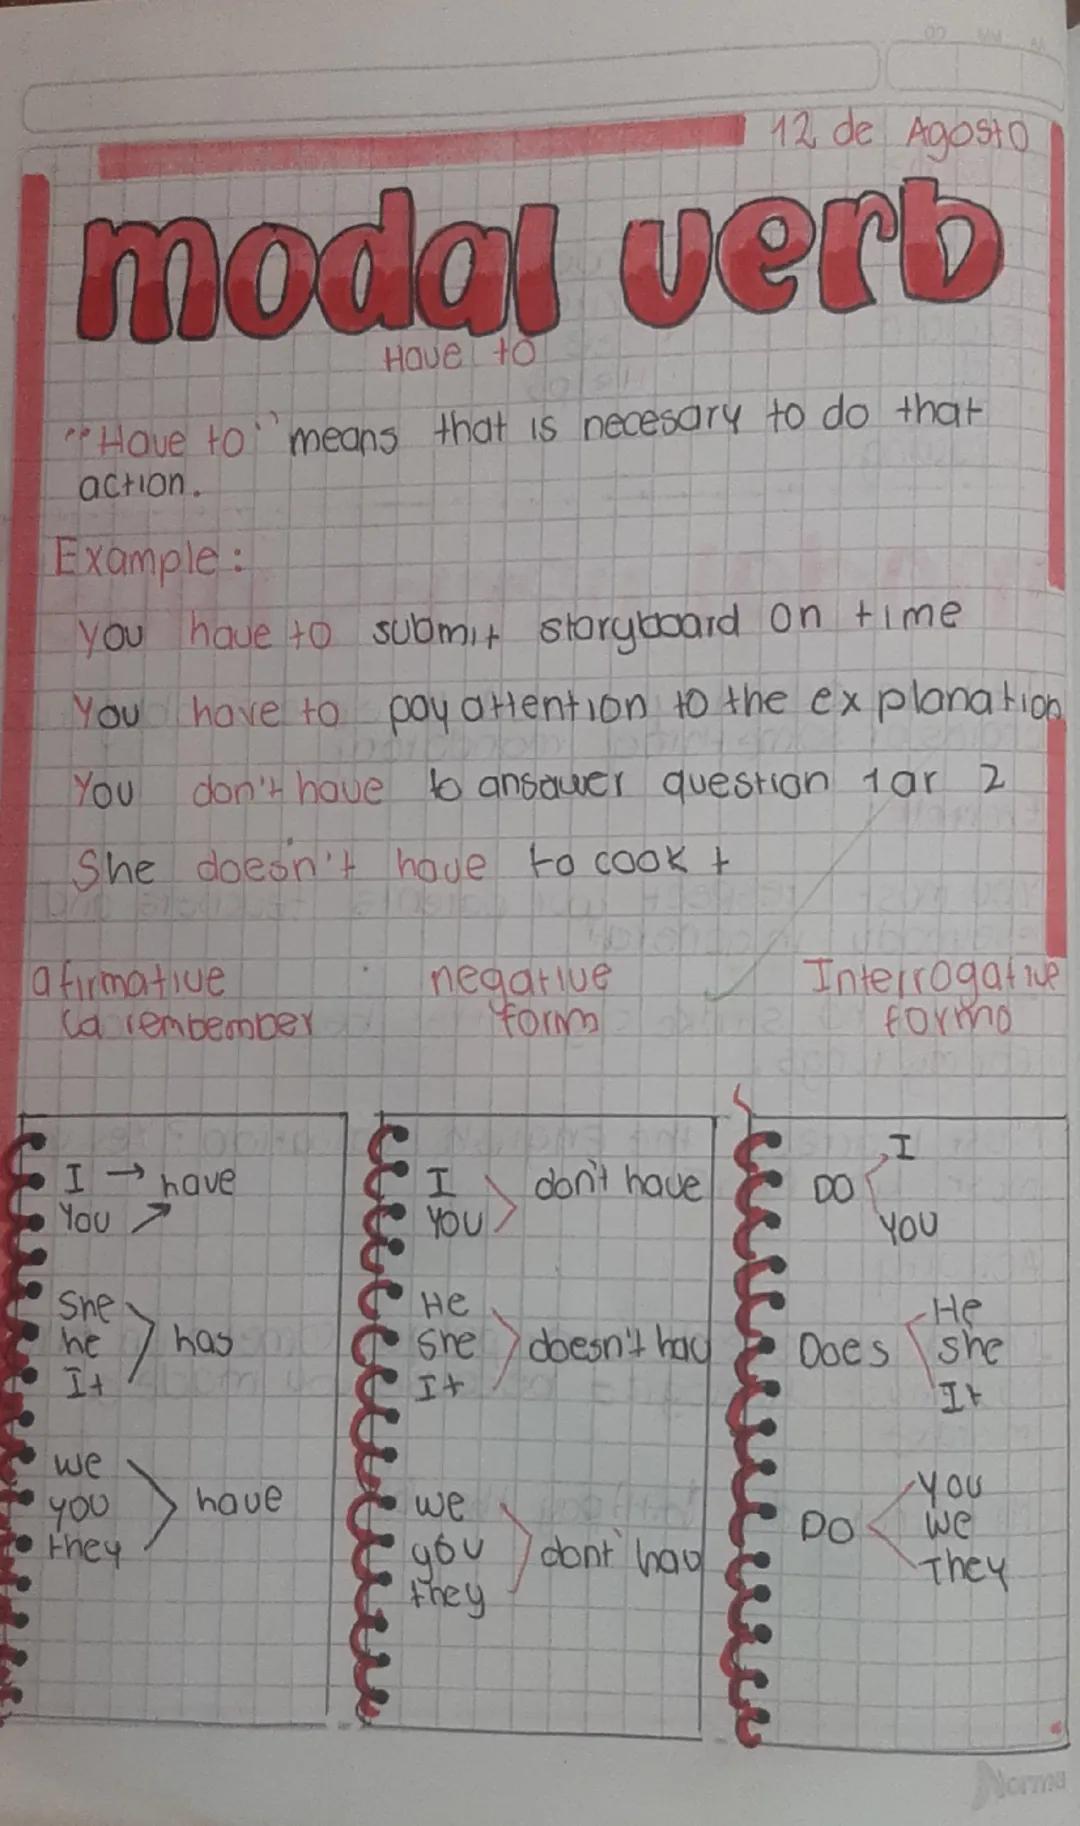 12 de Agosto
modal verb
Have to
"Have to" means that is necesary to do that
action.
Example:
You have to submit storyboard on time
You have to pay attention to the explanation
You don't have to ansawer question 1 ar 2
She doesn't have to cook t
afirmative
negative
Interrogative
La rembember
form
formo
I → have
You ↗
She
he
It
has
we
you
they
have
I
You
don't have
He
She
It
doesn't hav
we
you
they
dont' hav
DO
I
YOU
Does
He
she
It
DO
You
we
They
Norma